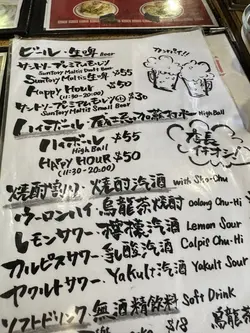 ビール・生啤 Beer
カンパイ!!
サントリープレミアムモルツ
Suntory Maltis Draft Beer
Suntory Maltis生啤 ¥55
Happy Hour ¥50
(11:30-20:00)
サントリープレミアムモルツ小 ¥30
Suntory Maltis Small Beer
ハイボール
ハイボール ¥55
High Ball
Happy Hour ¥50
(11:30-20:00)
焼酎割り・焼酌汽酒 with Sho-Chu
ウーロンハイ・烏龍茶焼酎 Oolong Chu-Hi
レモンサワー・檸檬汽酒 Lemon Sour
カルピスサワー・乳酸汽酒 Calpis Chu-Hi
ヤクルトサワー・Yakult汽酒 Yakult Sour
ソフトドリンク・無酒精飲料 Soft Drink
烏龍茶